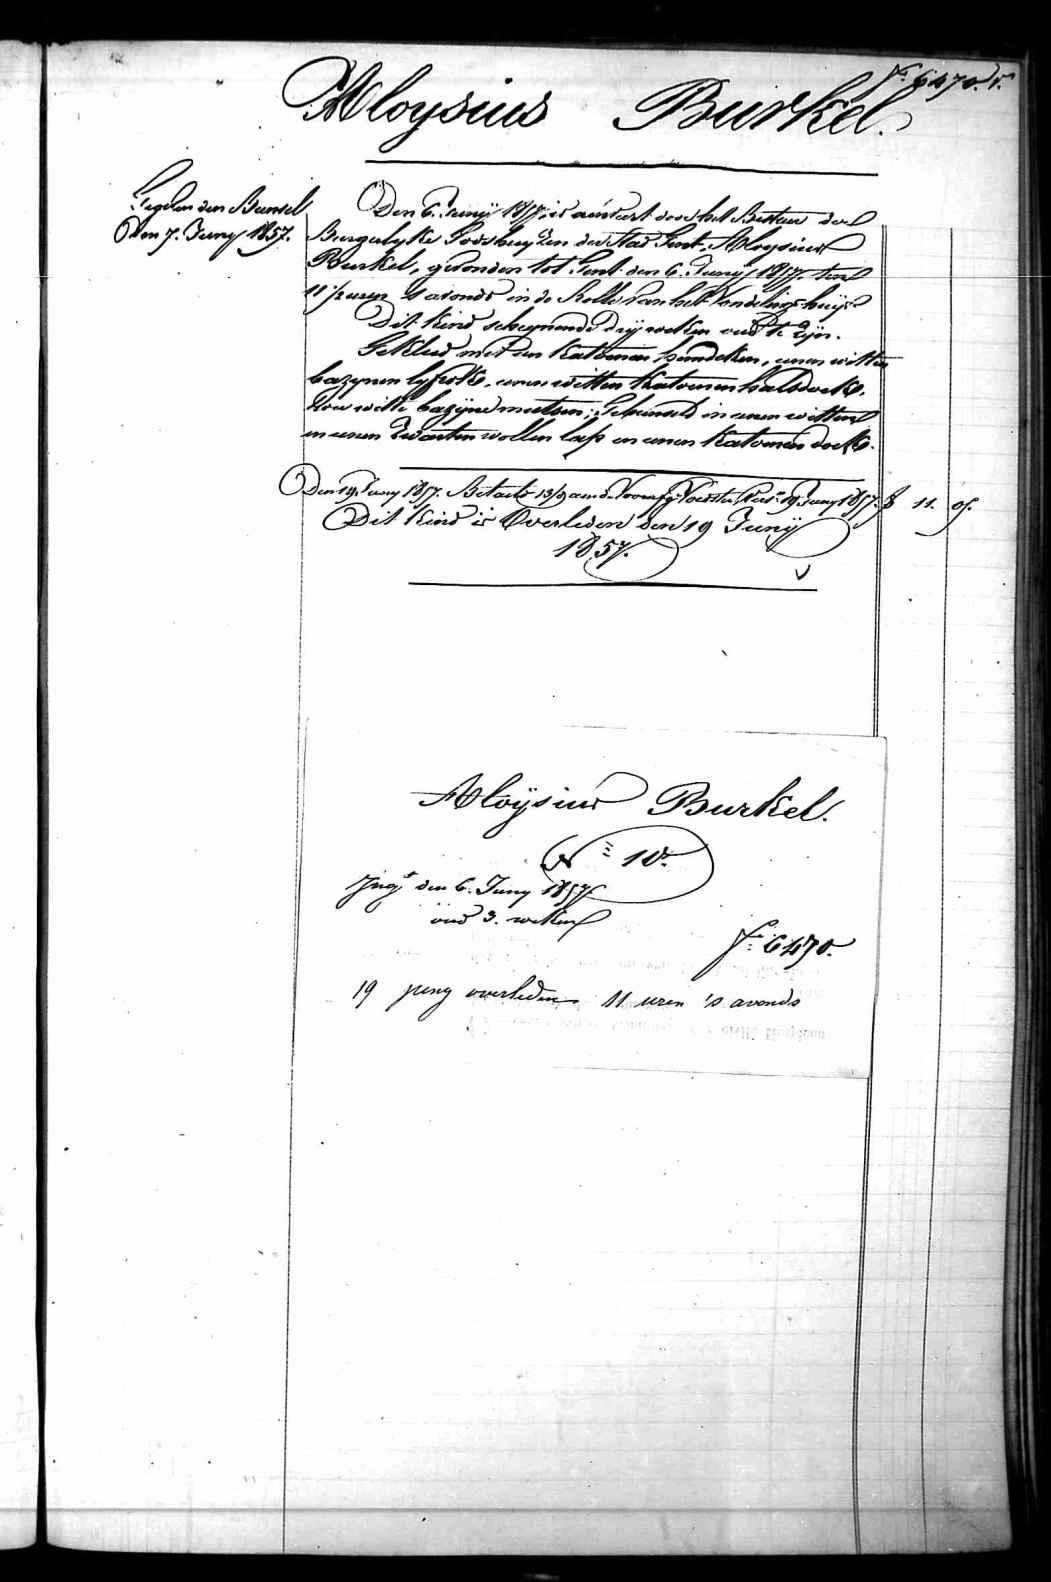 Fo 6470. v.
Aloysius Burkel.
Gegeven den Bunsel
Den 7. Juny 1857.
Den 6. Junij 1857, is aenveert door het Bestuer der
Burgerlyke Godshuyzen der Stad Gent, Aloysius
Burkel, gevonden tot Gent den 6. Junij 1857. ten
11 ½ uren 's avonds in de Rolle van het Vondelingshuijs.
Dit kind schynende drij weken oud te zijn.
Gekleed met een katoenen hemdeken, eenen witten
bazynen lyfrok, eenen witten katoenen halsdoek,
twee witte bazijne mutsen; Gebunseld in eenen witten
en eenen zwarten wollen lap en eenen katoenen doek.
Den 19. Juny 1857. Betaeld 13/9 aen de Voedster 19. Juny 1857. 11. 05.
Dit kind is Overleden den 19 Junij
1857.
Aloÿsius Burkel.
N 10.
Ing den 6. Juny 1857
oud 3. weken
Fo 6470.
19 juny overleden 11 uren 's avonds